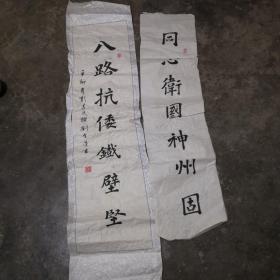 同心衛國神州固
八路抗倭鐵壁堅